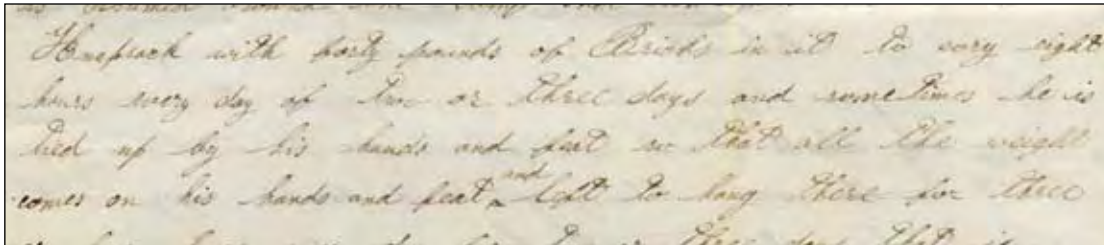 Knapsack with forty pounds of Bricks in it to cary eight
hours every day of two or three days and some times he is
tied up by his hands and feat so that all the weight
comes on his hands and feat and left to hang there for three
three days that is